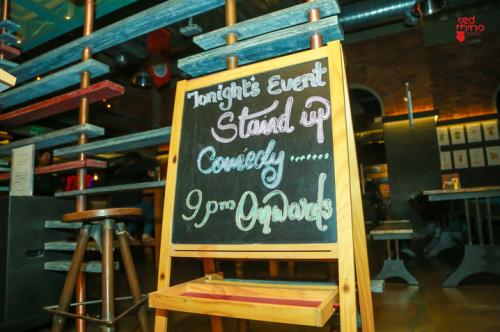 Tonight's Event
Stand up
Comedy.......
9 pm Onwards
red
rhino